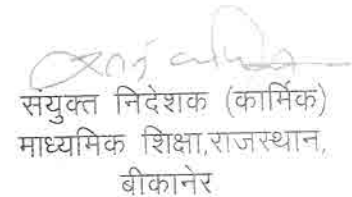 संयुक्त निदेशक (कार्मिक)
माध्यमिक शिक्षा,राजस्थान,
बीकानेर